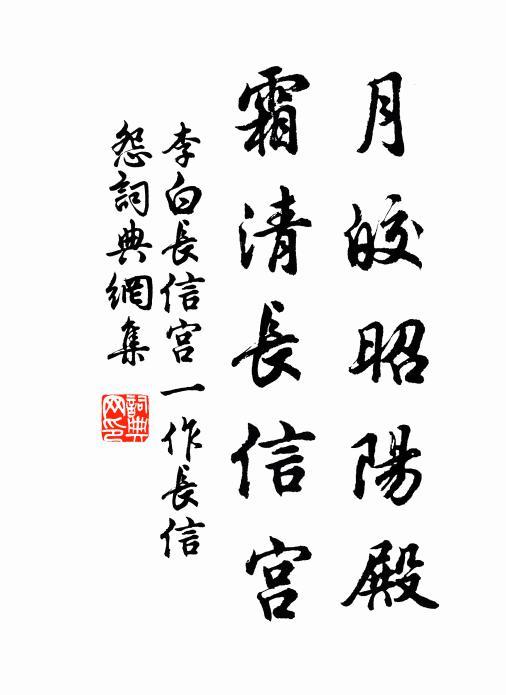 月皎昭陽殿
霜清長信宮
李白長信宮一作長信
怨詞典網集
詞典
网印